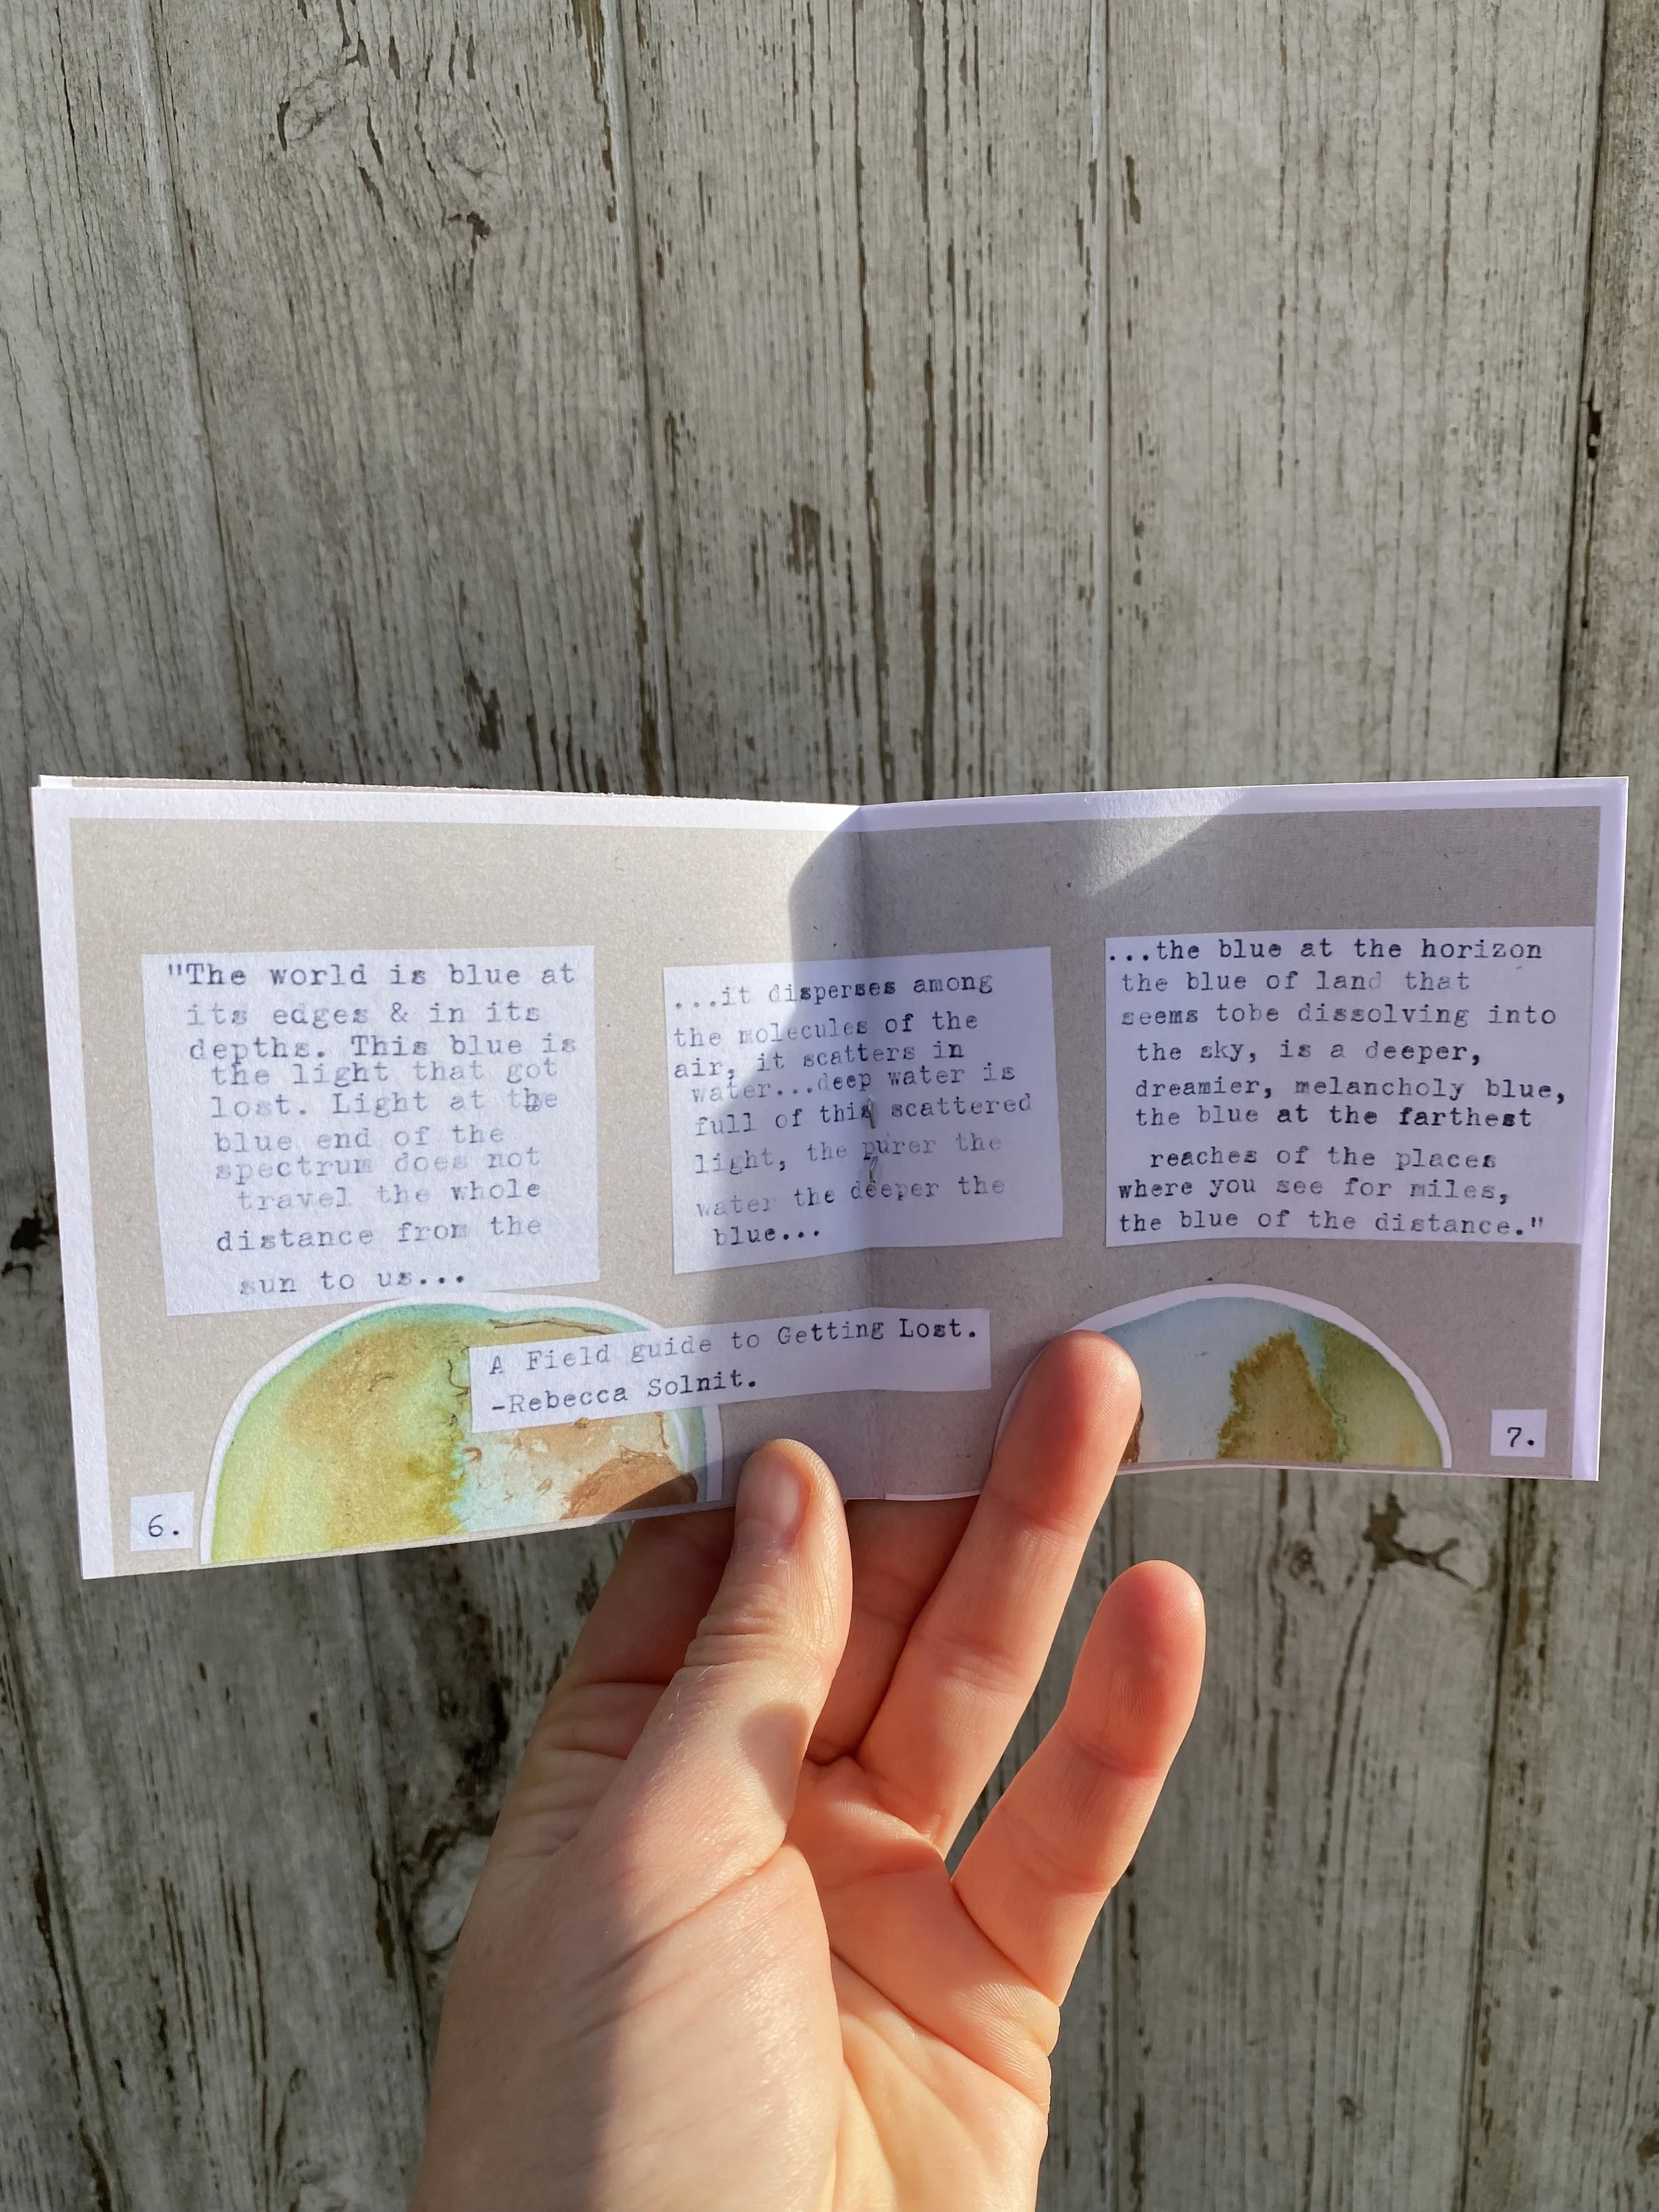 "The world is blue at
its edges & in its
depths. This blue is
the light that got
lost. Light at the
blue end of the
spectrum does not
travel the whole
distance from the
sun to us...
...it disperses among
the molecules of the
air, it scatters in
water...deep water is
full of this scattered
light, the purer the
water the deeper the
blue...
...the blue at the horizon
the blue of land that
seems tobe dissolving into
the sky, is a deeper,
dreamier, melancholy blue,
the blue at the farthest
reaches of the places
where you see for miles,
the blue of the distance."
A Field guide to Getting Lost.
-Rebecca Solnit.
6.
7.